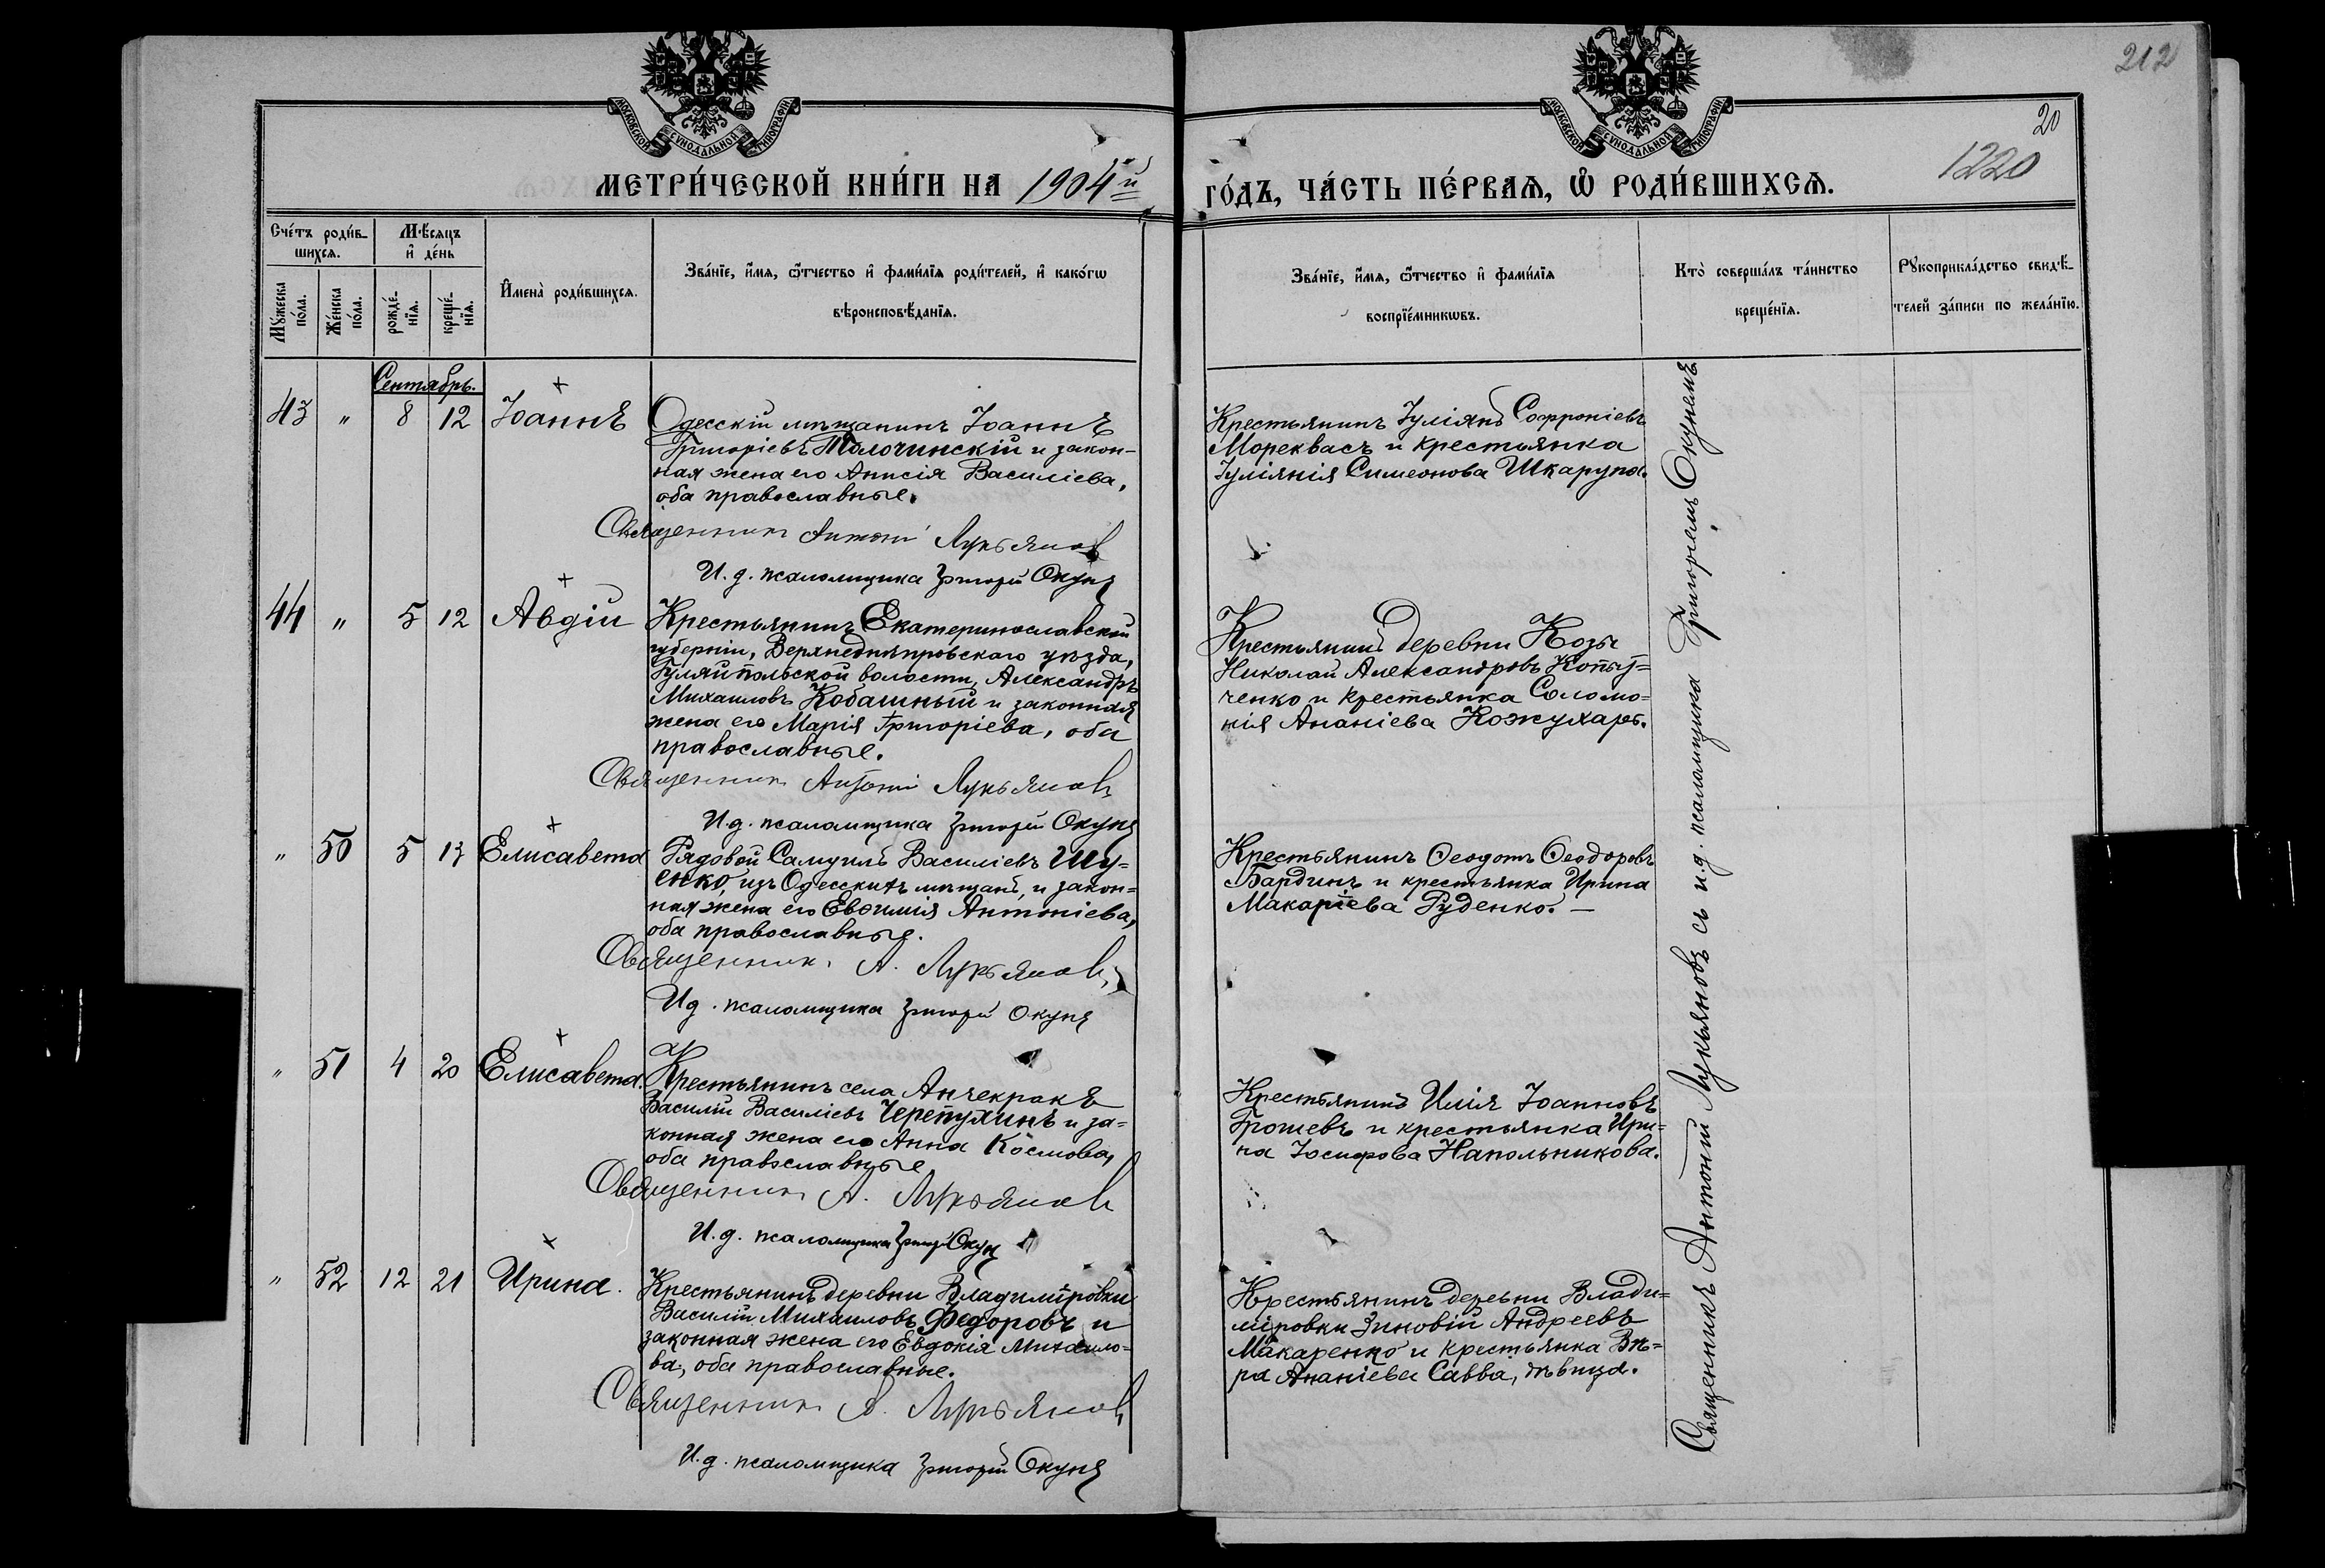 212
20
1220
МОСКОВСКОЙ СѴНОДАЛЬНОЙ ТИПОГРАФІИ
МОСКОВСКОЙ СѴНОДАЛЬНОЙ ТИПОГРАФІИ
МЕТРИ́ЧЕСКОЙ КНИ́ГИ НА 1904й
ГО́ДЪ, ЧА́СТЬ ПЕ́РВАѦ, Ѽ РОДИ́ВШИХСѦ.
Сче́тъ роди́в-
шихсѧ.
Мѣ́сяцъ
и҆ де́нь
Мꙋ́жеска
по́ла.
Же́нска
по́ла.
рожде́-
нїѧ.
креще́-
нїѧ.
И҆мена̀ роди́вшихсѧ.
Зва́нїе, и҆́мѧ, ѻ҆́тчество и҆ фами́лїѧ роди́телей, и҆ како́гѡ
вѣроисповѣ́данїѧ.
Зва́нїе, и҆́мѧ, ѻ҆́тчество и҆ фами́лїѧ
воспрїе́мникѡвъ.
Кто̀ соверша́лъ та́инство
креще́нїѧ.
Рꙋкоприкла́дство свидѣ́-
телей за́писи по жела́нїю.
Сентябрь.
43 " 8 12 Іоаннъ
Одесскій мѣщанинъ Іоаннъ
Григоріевъ Толочинскій и закон-
ная жена его Анисія Василіева,
оба православные.
Священникъ Антоній Лукьянов
И. д. псаломщика Григорій Окунь
Крестьянинъ Іуліянъ Софроніевъ
Мореквасъ и крестьянка
Іуліянія Симеонова Шкарупа.
44 " 5 12 Авдій
Крестьянинъ Екатеринославской
губерніи, Верхнеднѣпровскаго уѣзда,
Гуляйпольской волости, Александръ
Михаиловъ Кобашный и законная
жена его Марія Григоріева, оба
православные.
Священникъ Антоній Лукьяновъ
И. д. псаломщика Григорій Окунь
Крестьянинъ деревни Козы
Николай Александровъ Копыт-
ченко и крестьянка Соломо-
нія Ананіева Кожухарь.
" 50 5 13 Елисавета
Рядовой Самуилъ Василіевъ Шу-
енко, изъ Одесскихъ мѣщанъ, и закон-
ная жена его Евѳимія Антоніева,
оба православные.
Священникъ А. Лукьяновъ
И д. псаломщика Григорій Окунь
Крестьянинъ Ѳеодотъ Ѳеодоровъ
Бардинъ и крестьянка Ирина
Макаріева Руденко. —
" 51 4 20 Елисавета.
Крестьянинъ села Анчекракъ
Василій Василіевъ Черепухинъ и за-
конная жена его Анна Космова,
оба православные
Священникъ А. Лукьянов
И. д. псаломщика Григ Окунь
Крестьянинъ Илія Іоанновъ
Грошевъ и крестьянка Ири-
на Іосифова Напольникова.
" 52 12 21 Ирина.
Крестьянинъ деревни Владиміровки
Василій Михаиловъ Федоровъ и
законная жена его Евдокія Михаило-
ва, оба православные.
Священникъ А. Лукьяновъ
И. д. псаломщика Григорій Окунь
Крестьянинъ деревни Влади-
міровки Зиновій Андреевъ
Макаренко и крестьянка Вѣ-
ра Ананіева Савва, дѣвица.
Священникъ Антоній Лукьяновъ съ и.д. псаломщика Григоріемъ Окунемъ